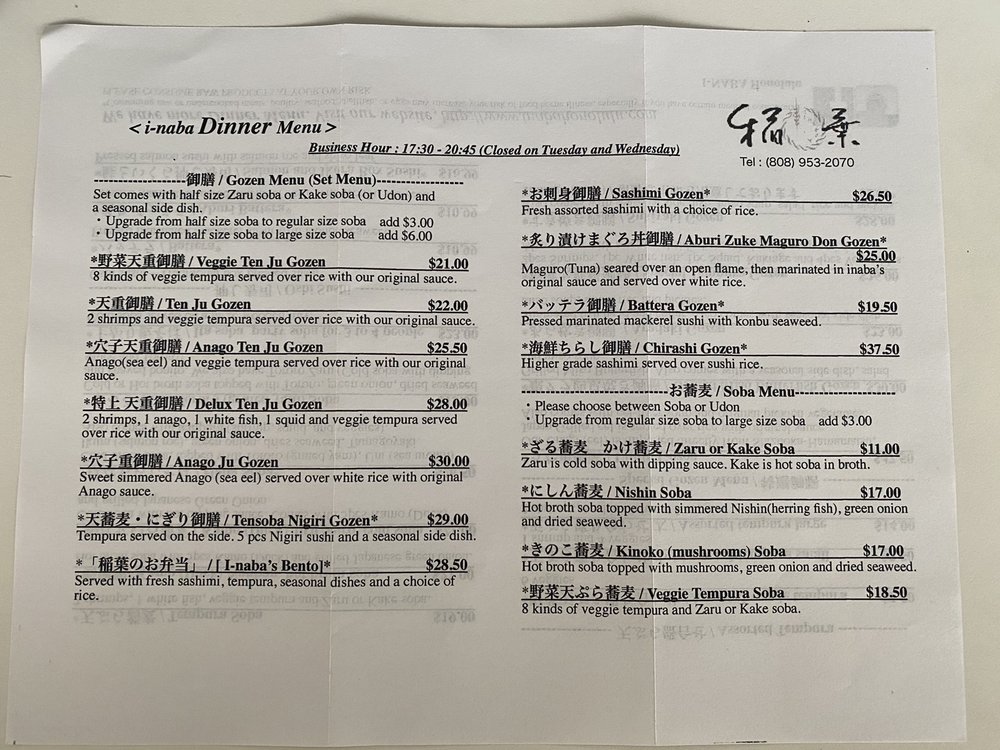 < i-naba Dinner Menu >
Business Hour : 17:30 - 20:45 (Closed on Tuesday and Wednesday)
稲葉
Tel : (808) 953-2070
--------------------御膳 / Gozen Menu (Set Menu)--------------------
Set comes with half size Zaru soba or Kake soba (or Udon) and
a seasonal side dish.
・Upgrade from half size soba to regular size soba add $3.00
・Upgrade from half size soba to large size soba add $6.00
*野菜天重御膳 / Veggie Ten Ju Gozen $21.00
8 kinds of veggie tempura served over rice with our original sauce.
*天重御膳 / Ten Ju Gozen $22.00
2 shrimps and veggie tempura served over rice with our original sauce.
*穴子天重御膳 / Anago Ten Ju Gozen $25.50
Anago(sea eel) and veggie tempura served over rice with our original
sauce.
*特上 天重御膳 / Delux Ten Ju Gozen $28.00
2 shrimps, 1 anago, 1 white fish, 1 squid and veggie tempura served
over rice with our original sauce.
*穴子重御膳 / Anago Ju Gozen $30.00
Sweet simmered Anago (sea eel) served over white rice with original
Anago sauce.
*天蕎麦・にぎり御膳 / Tensoba Nigiri Gozen* $29.00
Tempura served on the side. 5 pcs Nigiri sushi and a seasonal side dish.
*「稲葉のお弁当」 / [ I-naba's Bento]* $28.50
Served with fresh sashimi, tempura, seasonal dishes and a choice of
rice.
*お刺身御膳 / Sashimi Gozen* $26.50
Fresh assorted sashimi with a choice of rice.
*炙り漬けまぐろ丼御膳 / Aburi Zuke Maguro Don Gozen*
$25.00
Maguro(Tuna) seared over an open flame, then marinated in inaba's
original sauce and served over white rice.
*バッテラ御膳 / Battera Gozen* $19.50
Pressed marinated mackerel sushi with konbu seaweed.
*海鮮ちらし御膳 / Chirashi Gozen* $37.50
Higher grade sashimi served over sushi rice.
------------------------------お蕎麦 / Soba Menu---------------------
・Please choose between Soba or Udon
・Upgrade from regular size soba to large size soba add $3.00
*ざる蕎麦 かけ蕎麦 / Zaru or Kake Soba $11.00
Zaru is cold soba with dipping sauce. Kake is hot soba in broth.
*にしん蕎麦 / Nishin Soba $17.00
Hot broth soba topped with simmered Nishin(herring fish), green onion
and dried seaweed.
*きのこ蕎麦 / Kinoko (mushrooms) Soba $17.00
Hot broth soba topped with mushrooms, green onion and dried seaweed.
*野菜天ぷら蕎麦 / Veggie Tempura Soba $18.50
8 kinds of veggie tempura and Zaru or Kake soba.